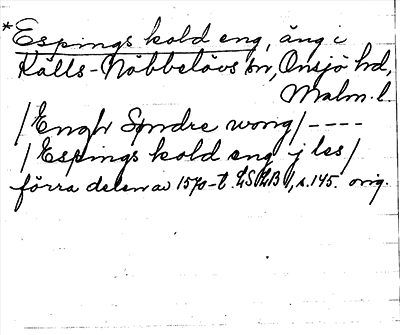 *Espings kold eng, äng i
Källs-Nöbbelövs sn, Onsjö hd,
Malm. l.
/Engh Søndre wong/ ----
/Espings kold eng j les/
förra delen av 1570-t. LSLB 1, s. 145. orig.